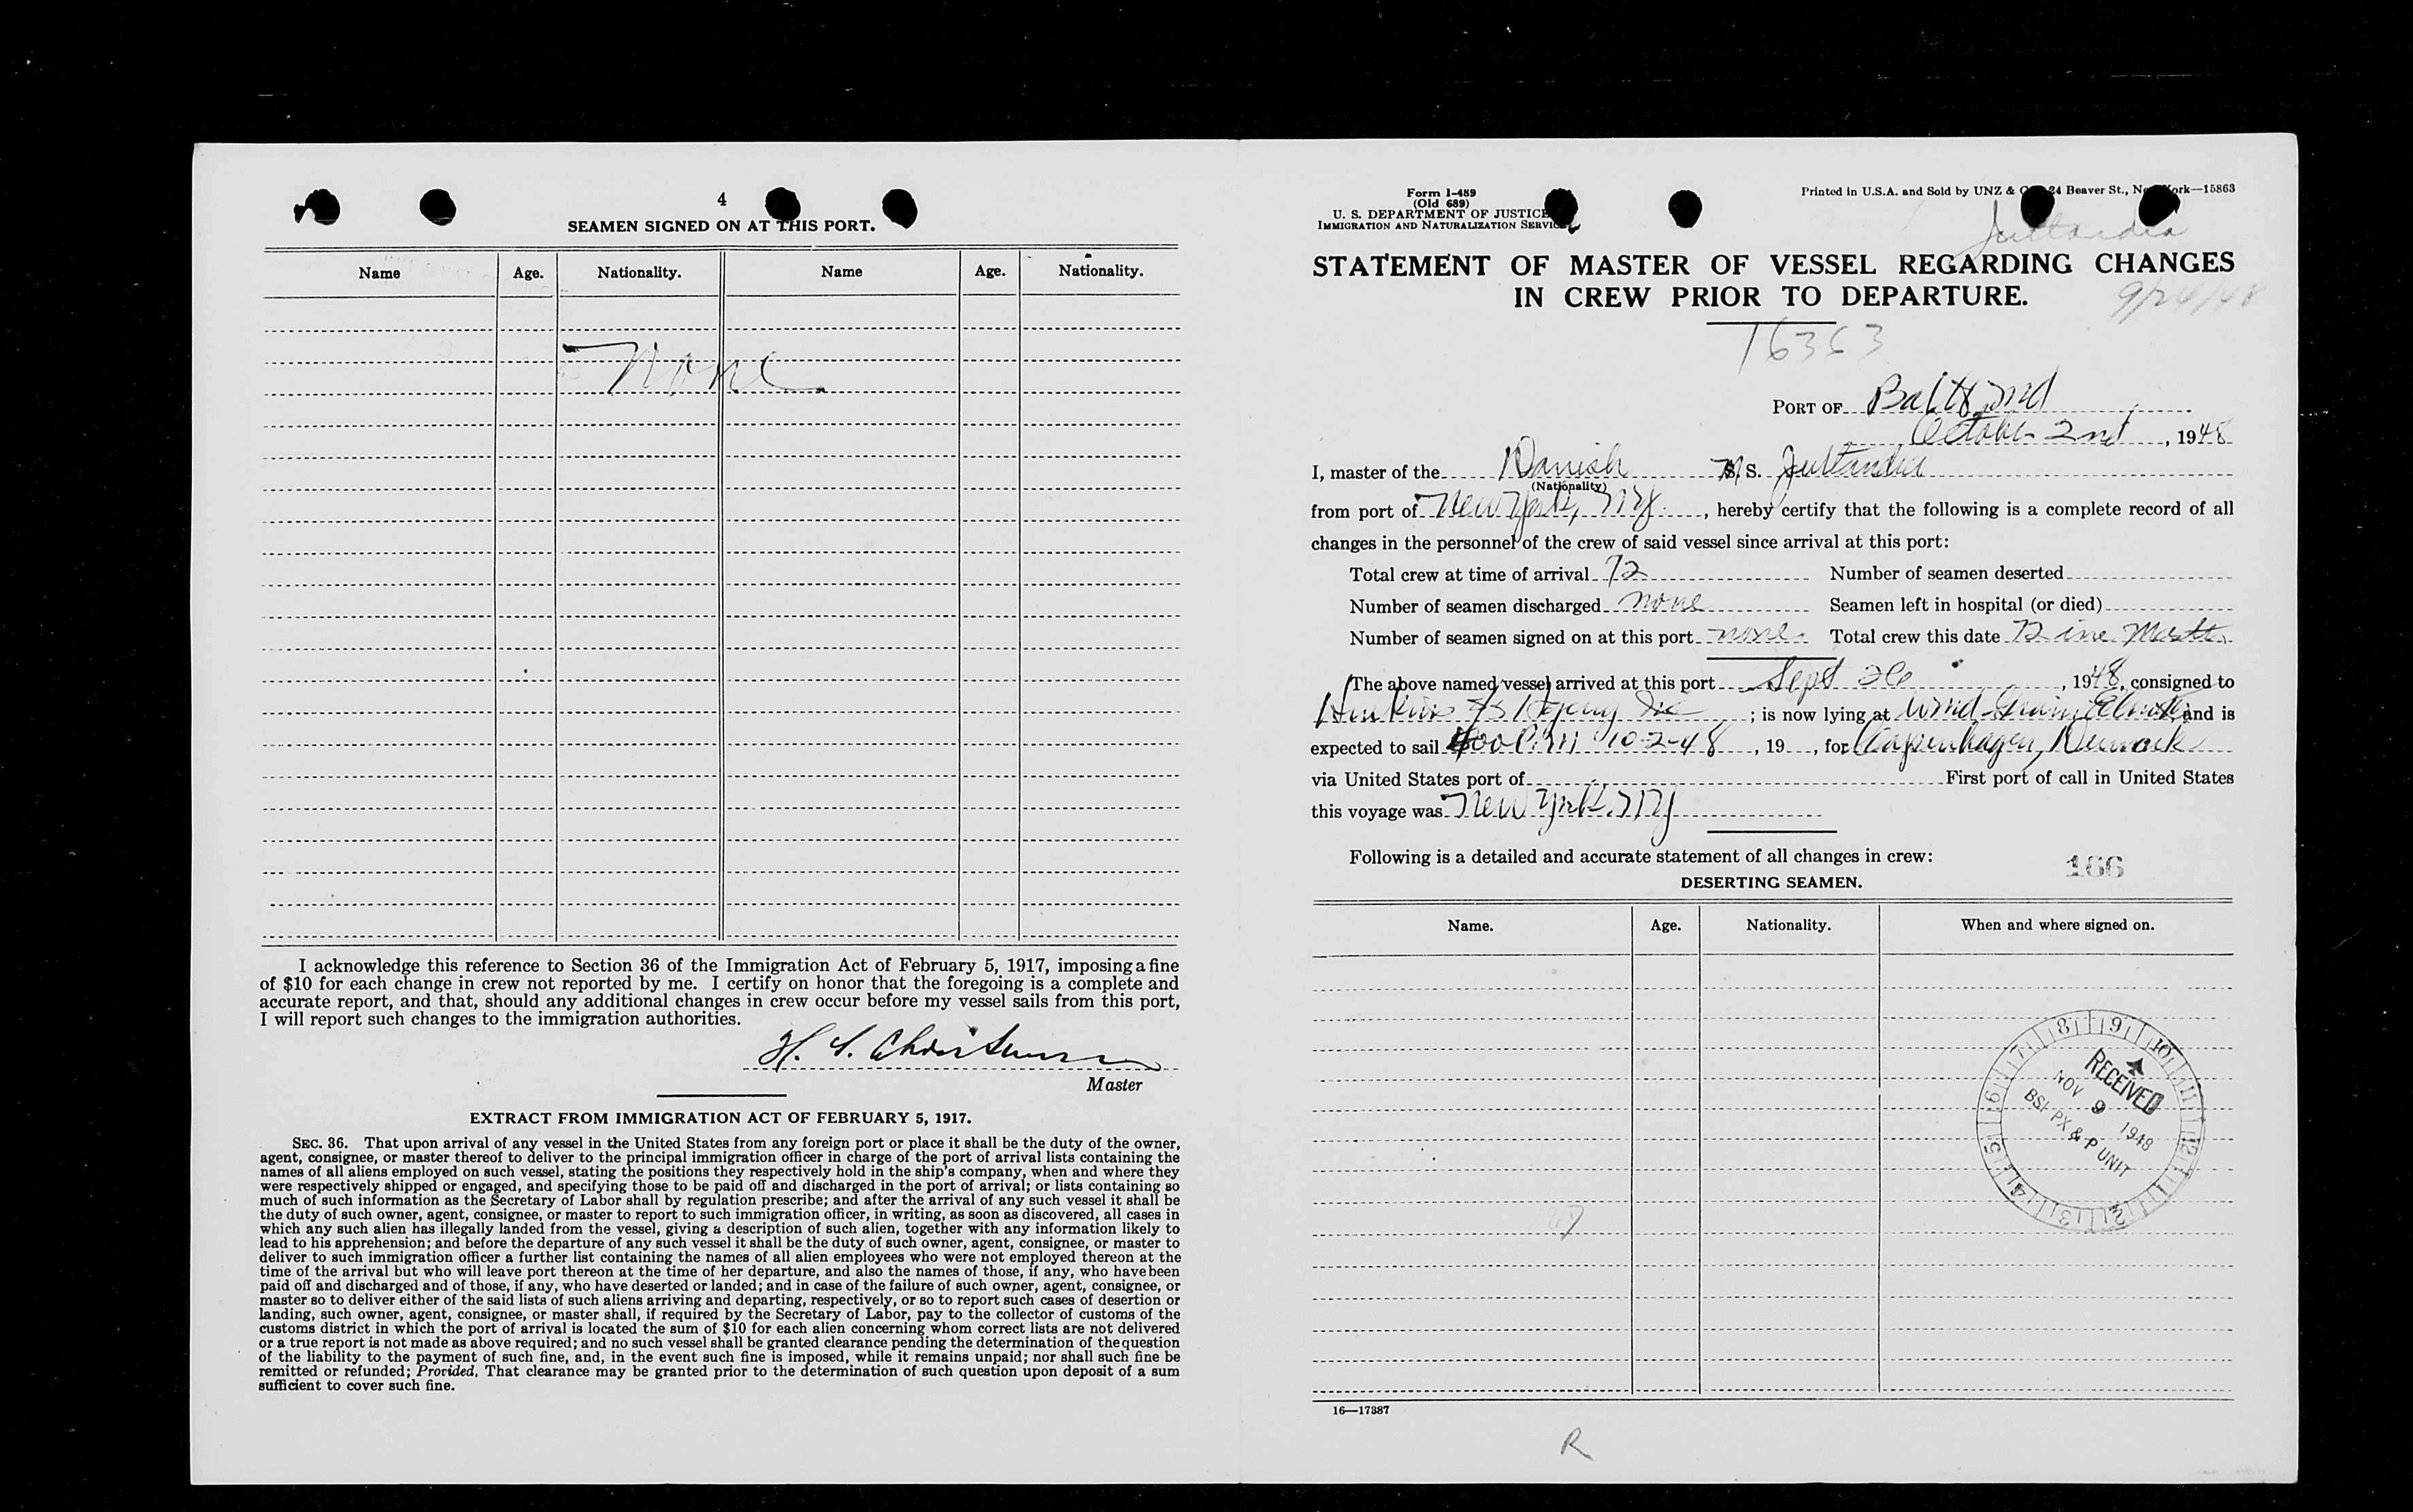 4
SEAMEN SIGNED ON AT THIS PORT.
Name Age. Nationality. Name Age. Nationality.
None
I acknowledge this reference to Section 36 of the Immigration Act of February 5, 1917, imposing a fine
of $10 for each change in crew not reported by me. I certify on honor that the foregoing is a complete and
accurate report, and that, should any additional changes in crew occur before my vessel sails from this port,
I will report such changes to the immigration authorities.
Master
EXTRACT FROM IMMIGRATION ACT OF FEBRUARY 5, 1917.
SEC. 36. That upon arrival of any vessel in the United States from any foreign port or place it shall be the duty of the owner,
agent, consignee, or master thereof to deliver to the principal immigration officer in charge of the port of arrival lists containing the
names of all aliens employed on such vessel, stating the positions they respectively hold in the ship's company, when and where they
were respectively shipped or engaged, and specifying those to be paid off and discharged in the port of arrival; or lists containing so
much of such information as the Secretary of Labor shall by regulation prescribe; and after the arrival of any such vessel it shall be
the duty of such owner, agent, consignee, or master to report to such immigration officer, in writing, as soon as discovered, all cases in
which any such alien has illegally landed from the vessel, giving a description of such alien, together with any information likely to
lead to his apprehension; and before the departure of any such vessel it shall be the duty of such owner, agent, consignee, or master to
deliver to such immigration officer a further list containing the names of all alien employees who were not employed thereon at the
time of the arrival but who will leave port thereon at the time of her departure, and also the names of those, if any, who have been
paid off and discharged and of those, if any, who have deserted or landed; and in case of the failure of such owner, agent, consignee, or
master so to deliver either of the said lists of such aliens arriving and departing, respectively, or so to report such cases of desertion or
landing, such owner, agent, consignee, or master shall, if required by the Secretary of Labor, pay to the collector of customs of the
customs district in which the port of arrival is located the sum of $10 for each alien concerning whom correct lists are not delivered
or a true report is not made as above required; and no such vessel shall be granted clearance pending the determination of the question
of the liability to the payment of such fine, and, in the event such fine is imposed, while it remains unpaid; nor shall such fine be
remitted or refunded; Provided, That clearance may be granted prior to the determination of such question upon deposit of a sum
sufficient to cover such fine.
Form I-489
(Old 689)
U. S. DEPARTMENT OF JUSTICE
IMMIGRATION AND NATURALIZATION SERVICE
Printed in U.S.A. and Sold by UNZ & 24 Beaver St., New York—15863
Jutlandia
STATEMENT OF MASTER OF VESSEL REGARDING CHANGES
IN CREW PRIOR TO DEPARTURE.
9/24/48
16363
PORT OF Balto Md
October 2nd, 1948
I, master of the Danish M S. Jutlandia
(Nationality)
from port of New York, NY, hereby certify that the following is a complete record of all
changes in the personnel of the crew of said vessel since arrival at this port:
Total crew at time of arrival 72 Number of seamen deserted
Number of seamen discharged none Seamen left in hospital (or died)
Number of seamen signed on at this port none Total crew this date 72 inc. Master
The above named vessel arrived at this port Sept 26, 1948, consigned to
Inc; is now lying at and is
expected to sail 10-2-48, 19, for Copenhagen, Denmark
via United States port of First port of call in United States
this voyage was New York, NY
Following is a detailed and accurate statement of all changes in crew:
166
DESERTING SEAMEN.
Name. Age. Nationality. When and where signed on.
RECEIVED
NOV 9 1948
BSI PX & P UNIT
8 9 10 11 12 1 2 3 4 5 6 7
16—17387
R